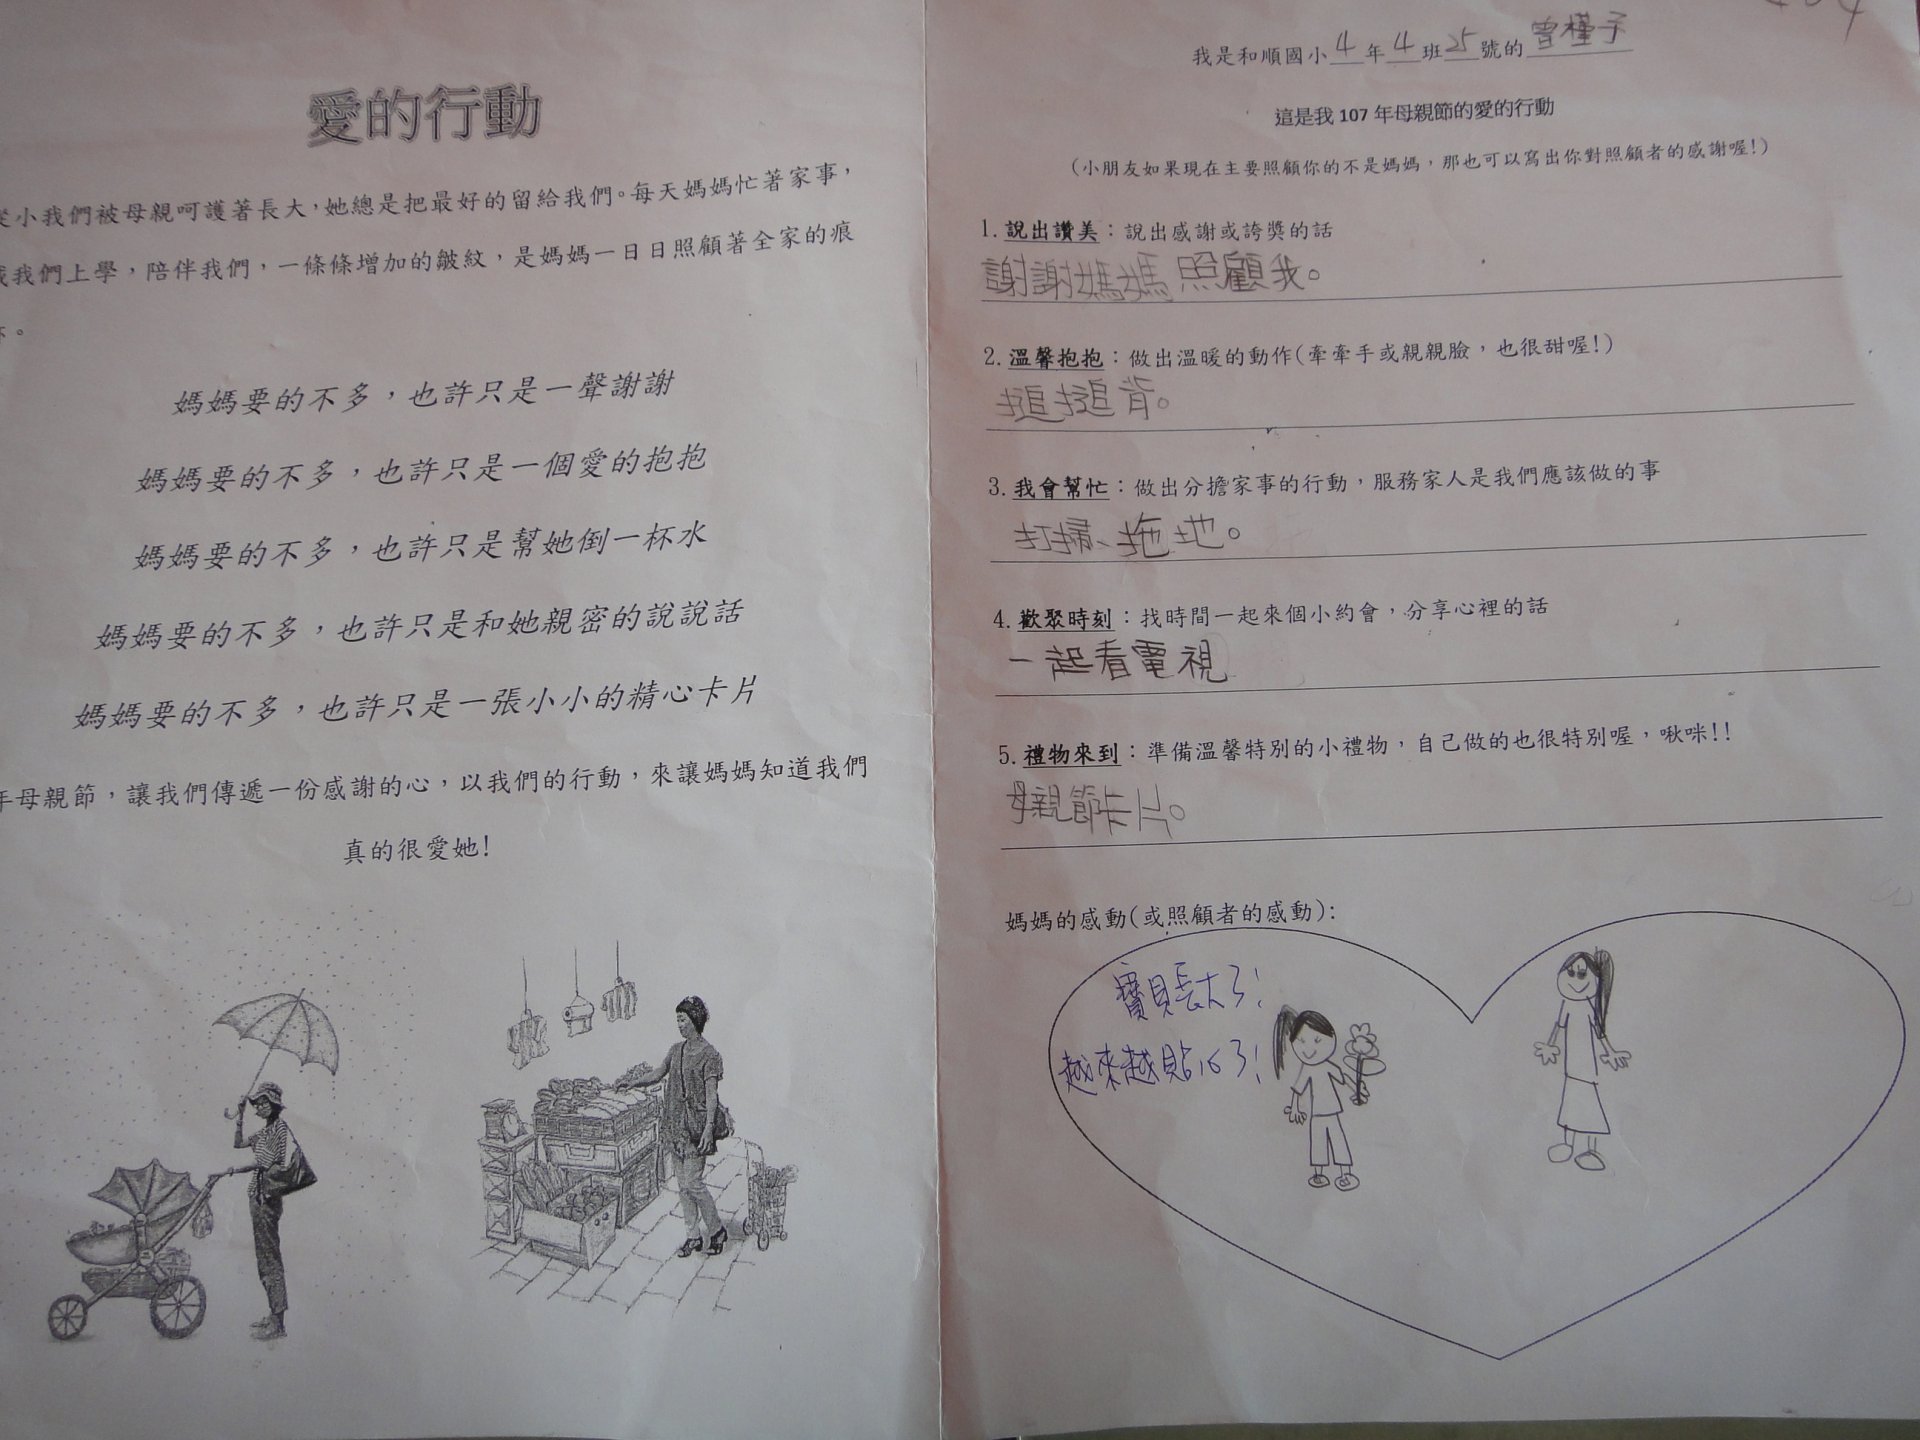 愛的行動
從小我們被母親呵護著長大,她總是把最好的留給我們。每天媽媽忙著家事,
我們上學,陪伴我們,一條條增加的皺紋,是媽媽一日日照顧著全家的痕
。
媽媽要的不多,也許只是一聲謝謝
媽媽要的不多,也許只是一個愛的抱抱
媽媽要的不多,也許只是幫她倒一杯水
媽媽要的不多,也許只是和她親密的說說話
媽媽要的不多,也許只是一張小小的精心卡片
年母親節,讓我們傳遞一份感謝的心,以我們的行動,來讓媽媽知道我們
真的很愛她!
我是和順國小4年4班25號的曾槿子
這是我107年母親節的愛的行動
(小朋友如果現在主要照顧你的不是媽媽,那也可以寫出你對照顧者的感謝喔!)
1.說出讚美:說出感謝或誇獎的話
謝謝媽媽照顧我。
2.溫馨抱抱:做出溫暖的動作(牽牽手或親親臉,也很甜喔!)
搥搥背。
3.我會幫忙:做出分擔家事的行動,服務家人是我們應該做的事
打掃、拖地。
4.歡聚時刻:找時間一起來個小約會,分享心裡的話
一起看電視
5.禮物來到:準備溫馨特別的小禮物,自己做的也很特別喔,啾咪!!
母親節卡片。
媽媽的感動(或照顧者的感動):
寶貝長大了!
越來越貼心了!